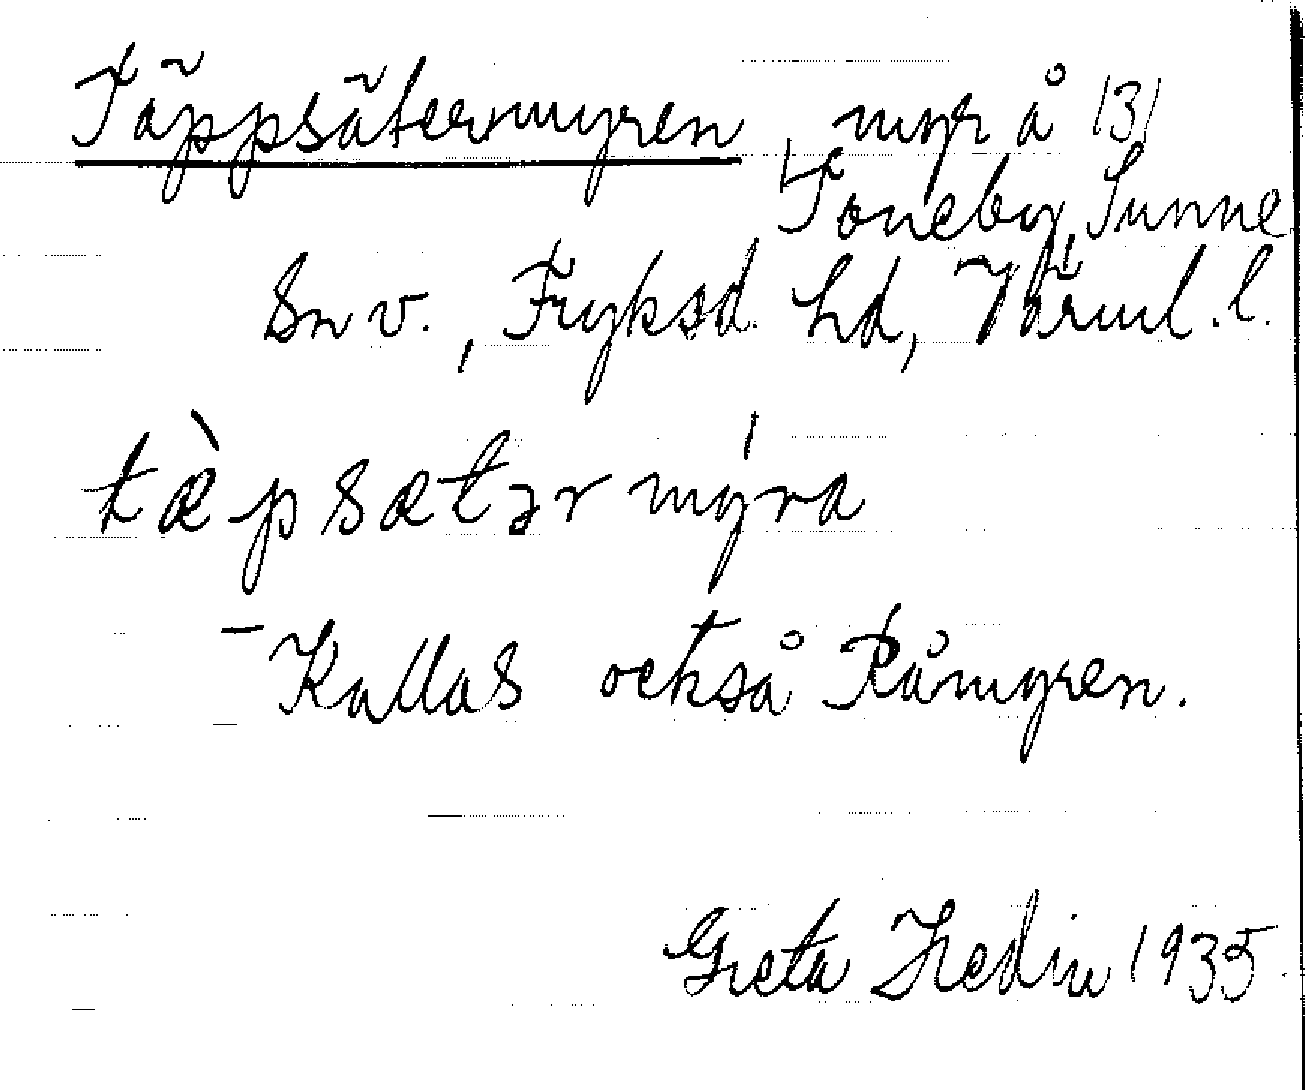 Täppsätermyren, myr å 131
Toneby, Sunne
sn v., Fryksd. hd, Värml. l.
tæ̀psætərmýra
– Kallas också Råmyren.
Greta Hedin 1935.